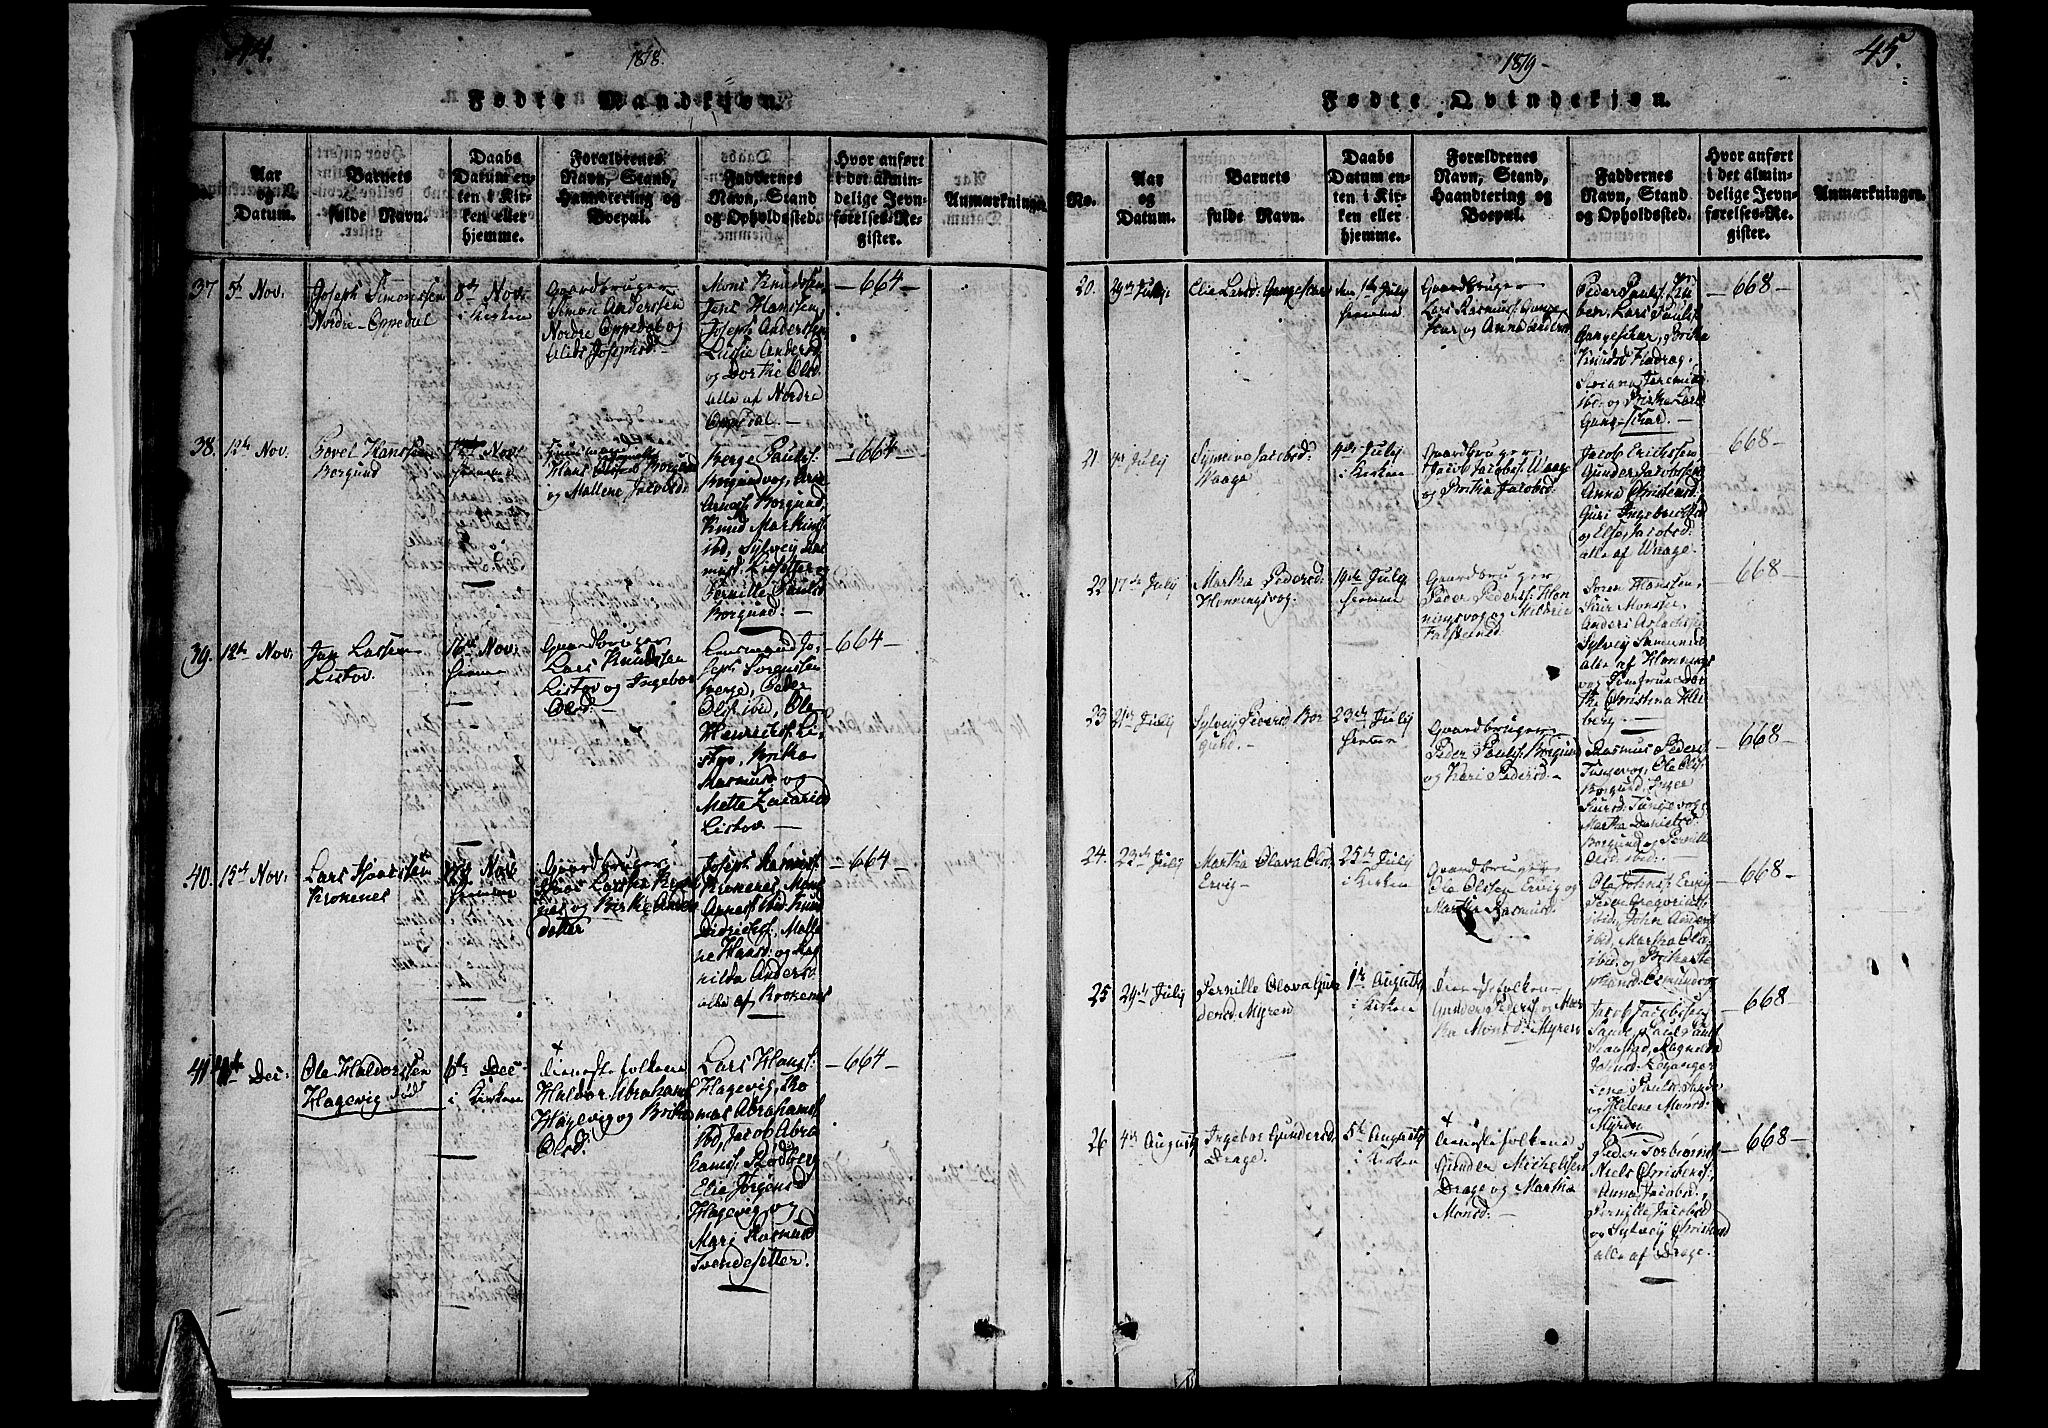 44.
1818.
Fødte Mandkjøn.
Aar og Datum.
Barnets fulde Navn.
Daabs Datum enten i Kirken eller hjemme.
Forældrenes Navn, Stand, Haandtering og Boepæl.
Faddernes Navn, Stand og Opholdssted.
Hvor anført i det almindelige Jevnførelses-Register.
Anmærkninger.
37
5t Nov.
Joseph Simonssen
Nordre-Oppedal
8de Nov.
i Kirken
Gaardbruger
Simon Anderssen
Nordre Oppedal og
Alids Josephsd:
Mons Knudssen
Jens Hanssen,
Joseph Anderssen
Lussie Andersd
og Dorthe Olsd.
alle af Nordre
Oppedal. —
— 664 —
38.
12te Nov.
Povel Hanssen
Borgund
Nov.
hjemme
Hans Olssen Borgund
og Mallene Jacobsd.
Berge Pauls:
Borgundvog, Arne
Arness: Borgund,
Knud Markuss:
ibid, Sylvey Ras
musd: Lisetter og
Pernille Paulsd
Borgund. —
— 664 —
39.
12te Nov.
Jan Larssen
Listov.
16de Nov.
hjemme
Gaardbruger
Lars Knudssen
Listov og Ingebor
Olsd: —
Jo
seph: Torgerssen
berge, Peder
Olss: ibid, Ole
Henrichs: Li
stov, Brithe
Rasmusd og
Mette Zacariasd
Listov —
— 664 —
40.
15de Nov.
Lars Haaessen
Krokenes
Nov.
hjemme
Gaardbruger
Haae Larssen Kroke
nes og Birthe Anders
datter
Joseph Rasmuss:
Krokenes, Mons
Arness: ibid Knud
Didrichs:, Malle
ne Haaed: og Rag
nilda Andersd
alle af Krokenes
— 664 —
41
Dec:
Ole Haldorssen
Hagevig død
6te Dec
i Kirken
Tienestefolkene
Haldor Abrahams
Hagevig og Brithe
Olsd.
Lars Hans:
Hagevig, Tho
mas Abrahams:
ibd, Jacob Abra
hams: Stodberg
Elie Jørgensd
Hagevig og
Mari Rasmusd
Svendesetter.
— 664 —
45.
1819 —
Fødte Qvindekjøn.
No.
Aar og Datum.
Barnets fulde Navn.
Daabs Datum enten i Kirken eller hjemme.
Forældrenes Navn, Stand, Haandtering og Boepæl.
Faddernes Navn, Stand og Opholdssted.
Hvor anført i det almindelige Jevnførelses-Register.
Anmærkninger.
20.
Elie Larsd: Gangeskar
den 1ste July
hjemme
Gaardbruger
Lars Rasmuss: Gange
skar og Anna Andersd
Peder Pauls:
Lars Pauls:
Gangeskar, Brithe
Knudsd
ibd. og Birthe Larsd
Gangeskar. —
— 668 —
21
1ste July
Synneva Jacobsd:
Waage
4de July
i Kirken
Gaardbruger
Jacob Jacobss: Waage
og Brithe Jacobsd:
Jacob Erichssen,
Gunder Jacobssen
Anna Christensd:
Guri Ingebrethsd
og Else Jacobsd:
alle af Waage.
668 —
22
17de July
Martha Pedersd:
Henningsvog.
19de July
hjemme
Gaardbruger
Peder Peders: Hen
ningsvog og Mildrie
Falkeensd
Soren Hanssen,
Siur Monssen
Anders Aslachs:
Sylvey Samuelsd
alle af Hennings
vog og Jomfrue Dor
the Christina Hei
berg. —
668 —
23
21de July
Sylvey Pedersd Bor
gund. —
23de July
hjemme
Gaardbruger
Peder Pauls: Borgund
og Kari Pedersd —
Rasmus Peders:
Tungevog, Ole Ols:
Borgund, Inger
Siursd: Tungevog
Martha Danielsd:
Borgund og Pernille
Olsd ibid. —
— 668 —
24.
23de July
Martha Olava Olsd:
Ervig —
25de July
i Kirken
Gaardbruger
Ole Olssen Ervig og
Martha Rasmusd.
Ole Johns: Ervig
Peder Gregorius:
ibid, John Anders:
ibid, Martha Olsd
ibid. og Brithe Ste
phansd: Osmundsvog
— 668 —
25
29de July
Pernille Olava Gun
dersd. Myren
1te Augusty
i Kirken
Tienestefolkene
Gunder Peders: og Mar
tha Monsd: Myren
Jacob Jacobssen
Sande, Paul Pauls:
Stavstad, Magnelda
Johnsd: Leganger
Lene Paulsd: Sande
og Helene Monsd:
Myren
— 668 —
26
4de Augusty
Ingebor Gundersd:
Drage.
5te Augusty
i Kirken
Tienestefolkene
Gunder Michelssen
Drage og Martha
Monsd: —
Peder Torbiørns:
Niels Christens:,
Anna Jacobsd:,
Pernille Jacobsd
og Sylvey Christensd
alle af Drage.
— 668 —